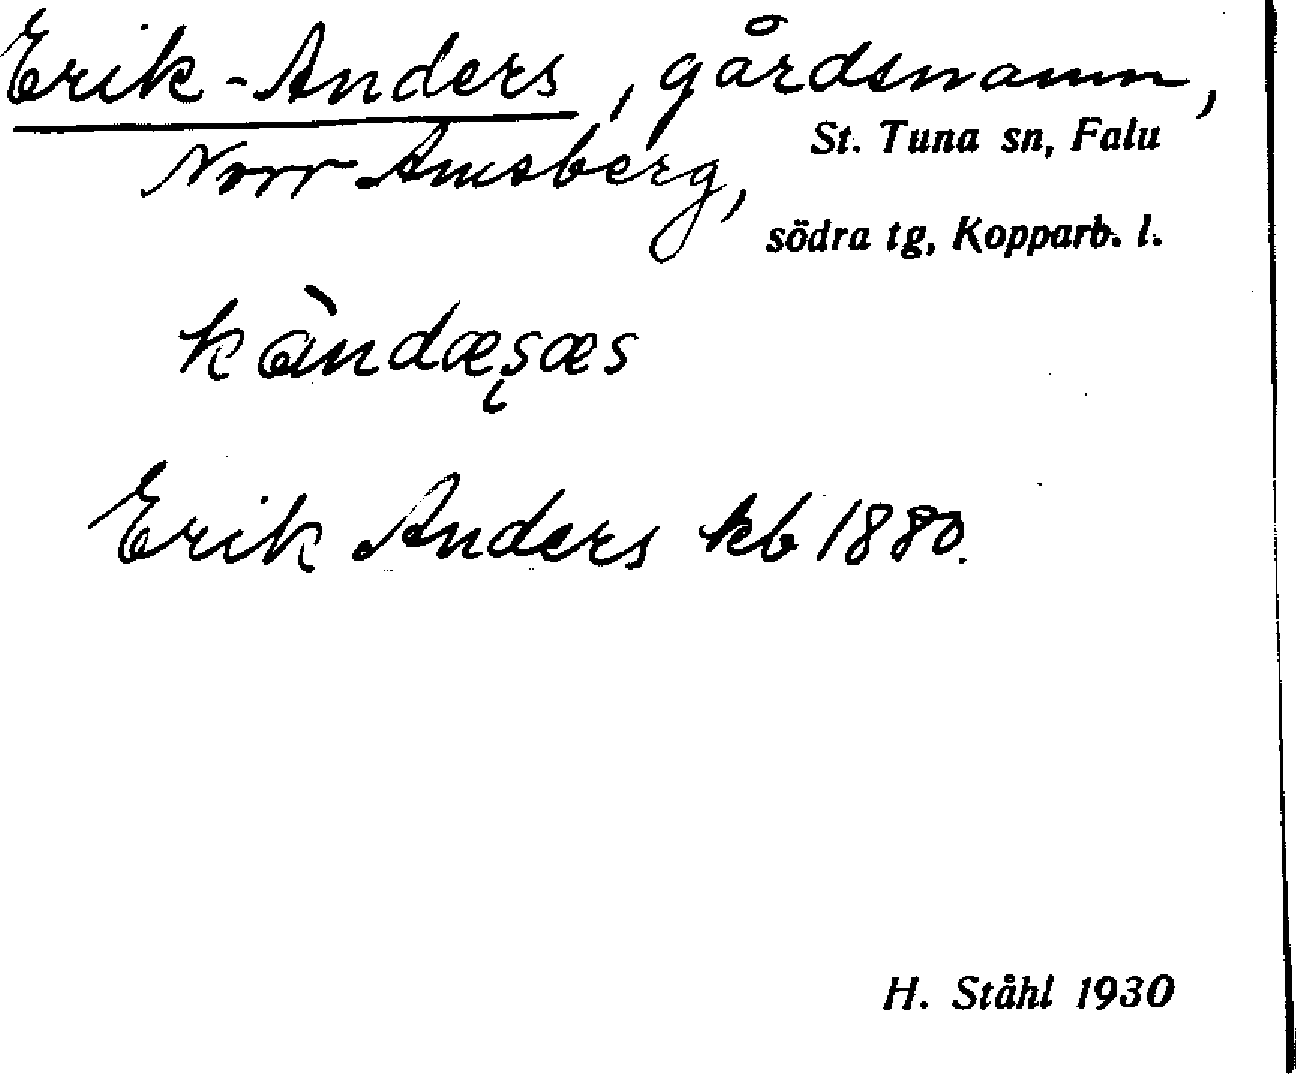 Erik-Anders, gårdsnamn,
St. Tuna sn, Falu
Norr Amsberg,
södra tg, Kopparb. l.
kàndæşæs
Erik Anders kb 1880.
H. Ståhl 1930